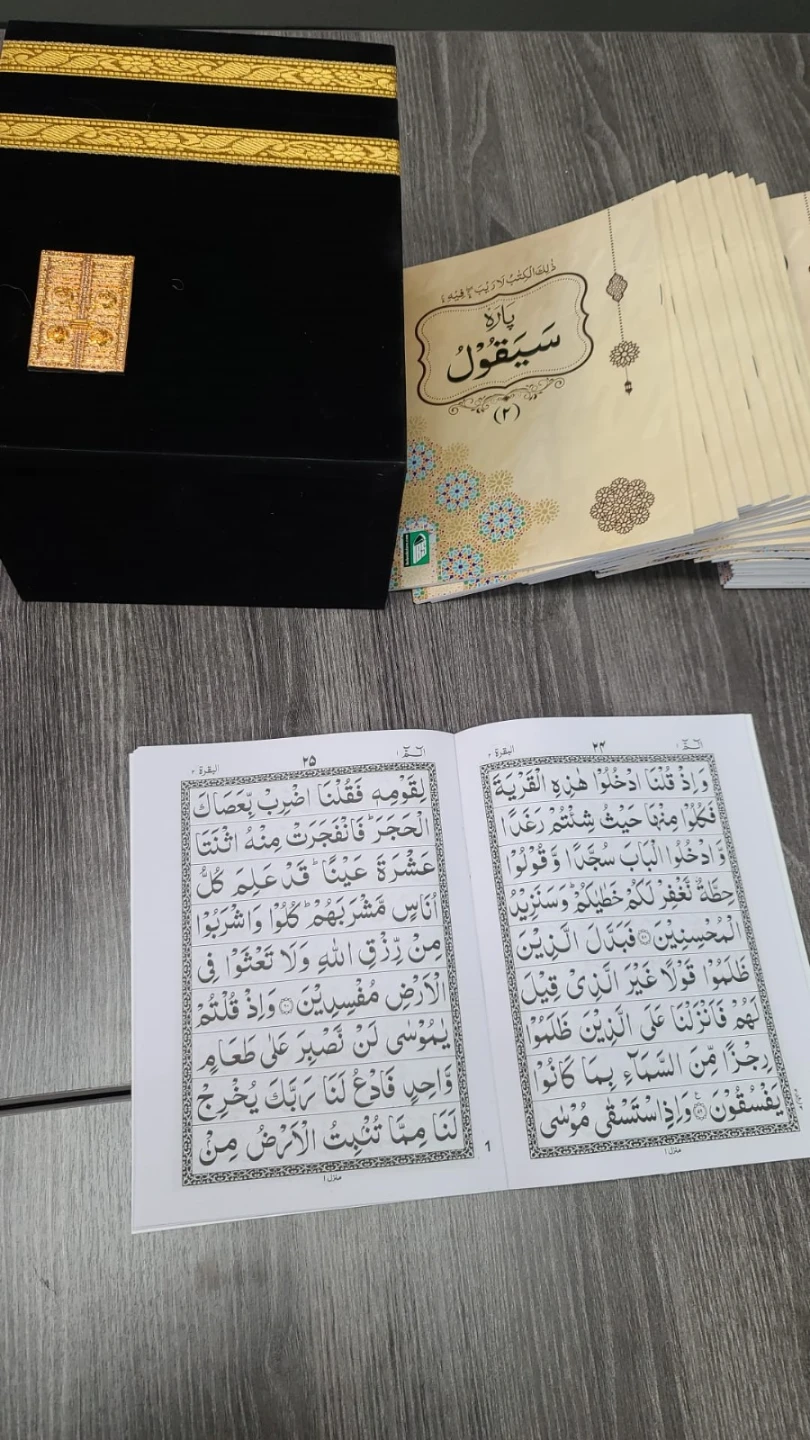 ذٰلِكَ الْكِتٰبُ لَا رَيْبَ ۛ فِيْهِ ۛ
پَارَہ
سَيَقُوْلُ
(٢)
الٓمّٓ ١
٢٤
البقرة ٢
وَاِذْ قُلْنَا ادْخُلُوْا هٰذِهِ الْقَرْيَةَ
فَكُلُوْا مِنْهَا حَيْثُ شِئْتُمْ رَغَدًا
وَّادْخُلُوا الْبَابَ سُجَّدًا وَّقُوْلُوْا
حِطَّةٌ نَّغْفِرْ لَكُمْ خَطٰيٰكُمْ ؕ وَسَنَزِيْدُ
الْمُحْسِنِيْنَ ۝٥٨ فَبَدَّلَ الَّذِيْنَ
ظَلَمُوْا قَوْلًا غَيْرَ الَّذِىْ قِيْلَ
لَهُمْ فَاَنْزَلْنَا عَلَى الَّذِيْنَ ظَلَمُوْا
رِجْزًا مِّنَ السَّمَآءِ بِمَا كَانُوْا
يَفْسُقُوْنَ ۝٥٩ وَاِذِ اسْتَسْقٰى مُوْسٰى
منزل ١
الٓمّٓ ١
٢٥
البقرة ٢
لِقَوْمِهٖ فَقُلْنَا اضْرِبْ بِّعَصَاكَ
الْحَجَرَ ؕ فَانْفَجَرَتْ مِنْهُ اثْنَتَا
عَشْرَةَ عَيْنًا ؕ قَدْ عَلِمَ كُلُّ
اُنَاسٍ مَّشْرَبَهُمْ ؕ كُلُوْا وَاشْرَبُوْا
مِنْ رِّزْقِ اللّٰهِ وَلَا تَعْثَوْا فِى
الْاَرْضِ مُفْسِدِيْنَ ۝٦٠ وَاِذْ قُلْتُمْ
يٰمُوْسٰى لَنْ نَّصْبِرَ عَلٰى طَعَامٍ
وَّاحِدٍ فَادْعُ لَنَا رَبَّكَ يُخْرِجْ
لَنَا مِمَّا تُنْۢبِتُ الْاَرْضُ مِنْۢ
منزل ١
1